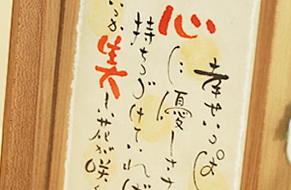 幸せいっぱ
心に優しさ
持ちつづけていれば
いつか美しい花が咲く